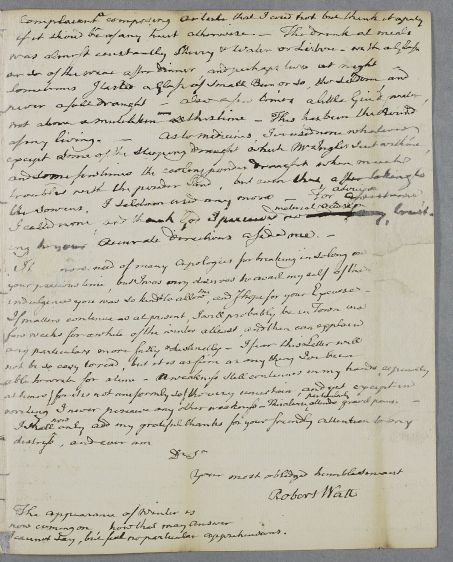 Complaisant composing as lasts that I could not but think it a pity
if it should be of any hurt otherwise. — The drink at meals
was almost constantly Sherry & Water or
or so of the wine after dinner and perhaps two at night
Sometimes I tasted a Glass of Small Beer or so, tho seldom and
never a full draught — also a few times a little Gin & water,
not above a mutchkin at this time — This has been the kind
of my living. — As to medicines, I us'd none whatever
except some of the sleeping draught which Mr sent with me,
and some few times the cooling powder draught when much
troubled with the
I seldom used any more — For Assistance
I called none, and thank God I perceive no medical advice or trust-
ing to your accurate directions aided me. —
It need of many Apologies for breaking in so long on
your precious time, but I was very desirous to avail myself of the
indulgence you was so kind to allow me, and I hope for your Excuse —
If matters continue as at present, I will probably be in Town in a
few weeks for a while of the winter at least, and then can explain
any particulars more fully & distinctly — I fear this Letter will
not be so easy to read, but it is as fair as any thing I've been
able to write for a time — A weakness still continues in my hands especially
at times for it is not uniformly so, tho very uncertain, and yet except in
working I never perceive any other weakness —
I shall only add my grateful thanks for your friendly attention to my
distress, and ever am
Dr Sir
Your most obliged humble servant
Robert Watt
The appearance of Winter is
now coming on, how that may answer
I cannot say, but feel no particular apprehensions.